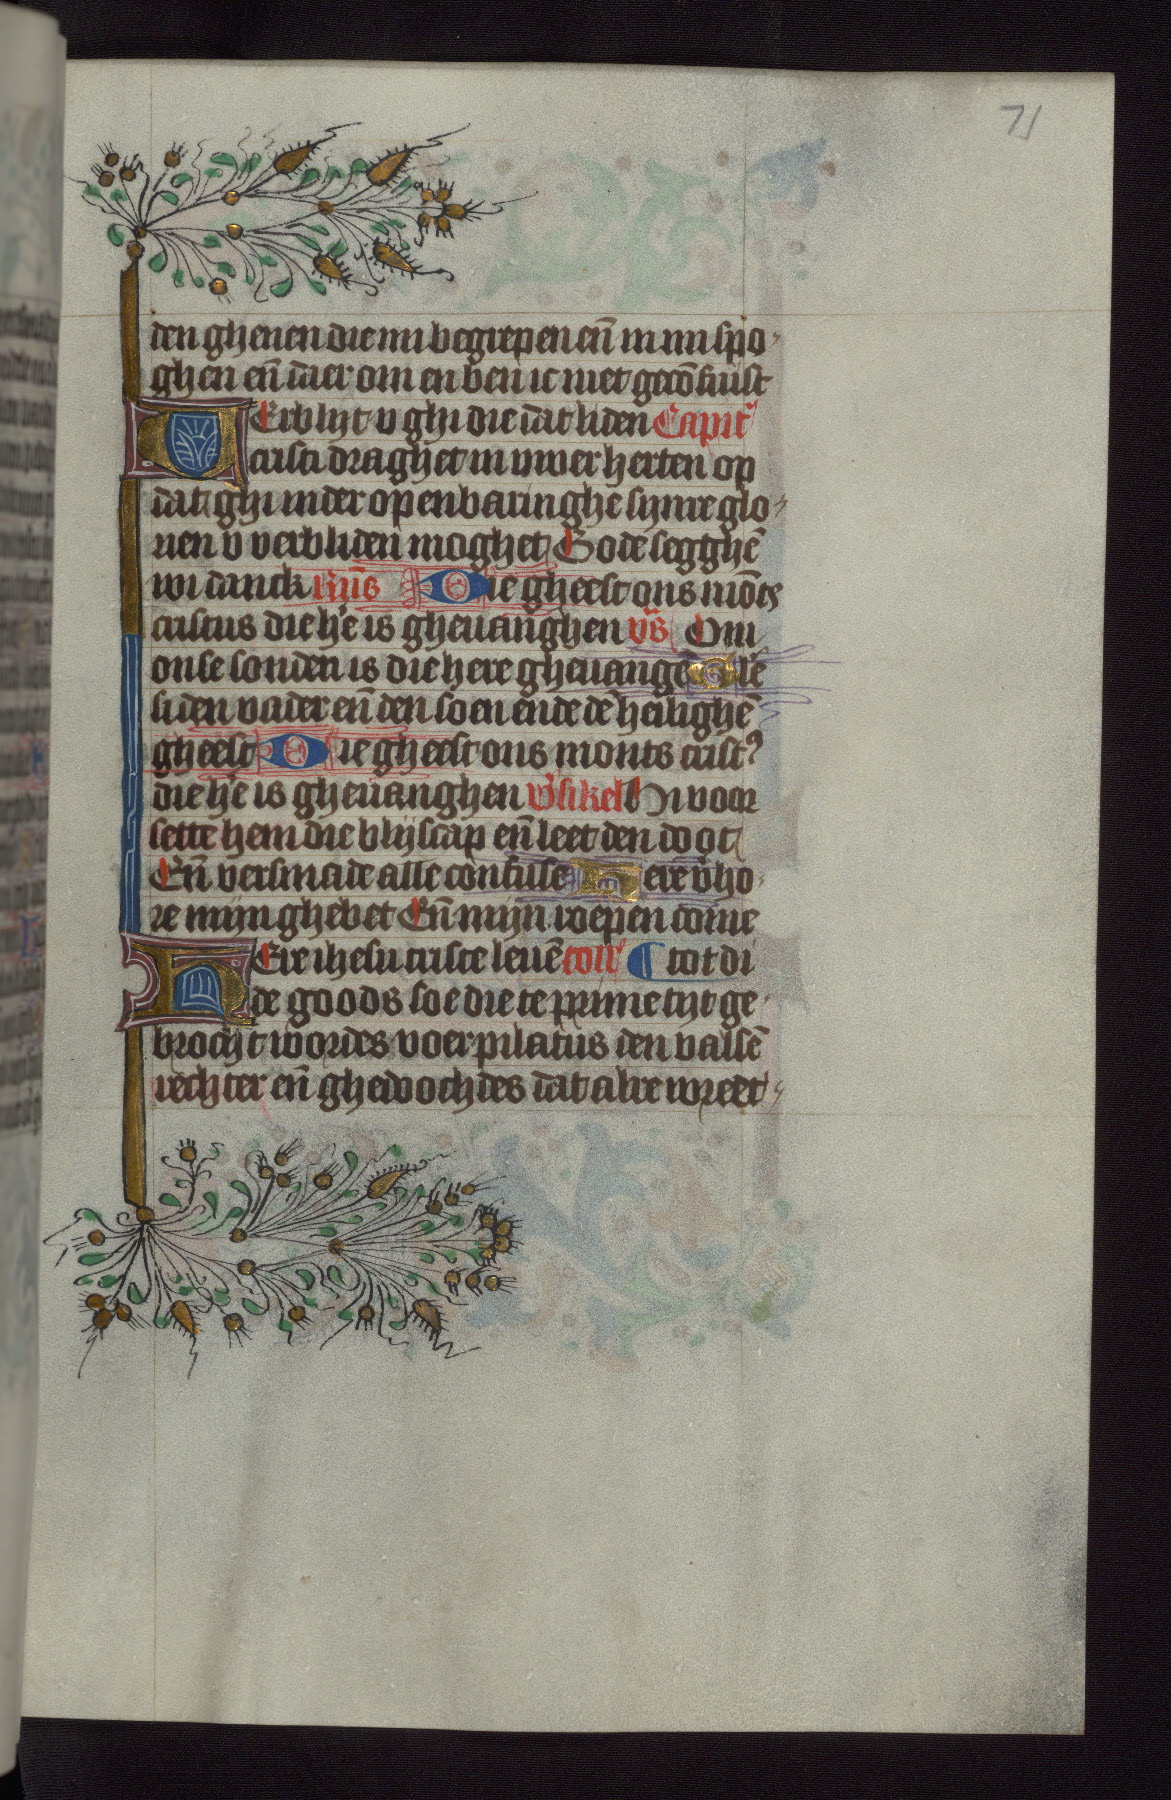 71
den ghenen die mi begrepen en̄ in mi spo
ghen en̄ daer om en ben ic niet gecōfuust
VErblijt v ghi die dat liden Capitʼ
cristi draghet in uwer herten op
dat ghi inder openbaringhe sijnre glo
rien v verbliden moghet Gode segghē
wi danck R̄ns Die gheest ons mōts
cristus die hʼe is gheuanghen v̄s Om
onse sonden is die here gheuangē Glē
si den vader en̄ den soen ende dē heilighē
gheest Die gheest ons monts cristꝰ
die hʼe is gheuanghen v̓sikel Hi voor
sette hem die blijscap en̄ leet den doot
En̄ versmade alle confuse Here v̓ho
re mijn ghebet En̄ mijn roepen come
HEre ihesu criste leuē coll' ¶ tot di
de goods soe die te prime tijt ge
brocht wordes voer pilatus den valsē
rechter en̄ ghedochdes dat alre wreet